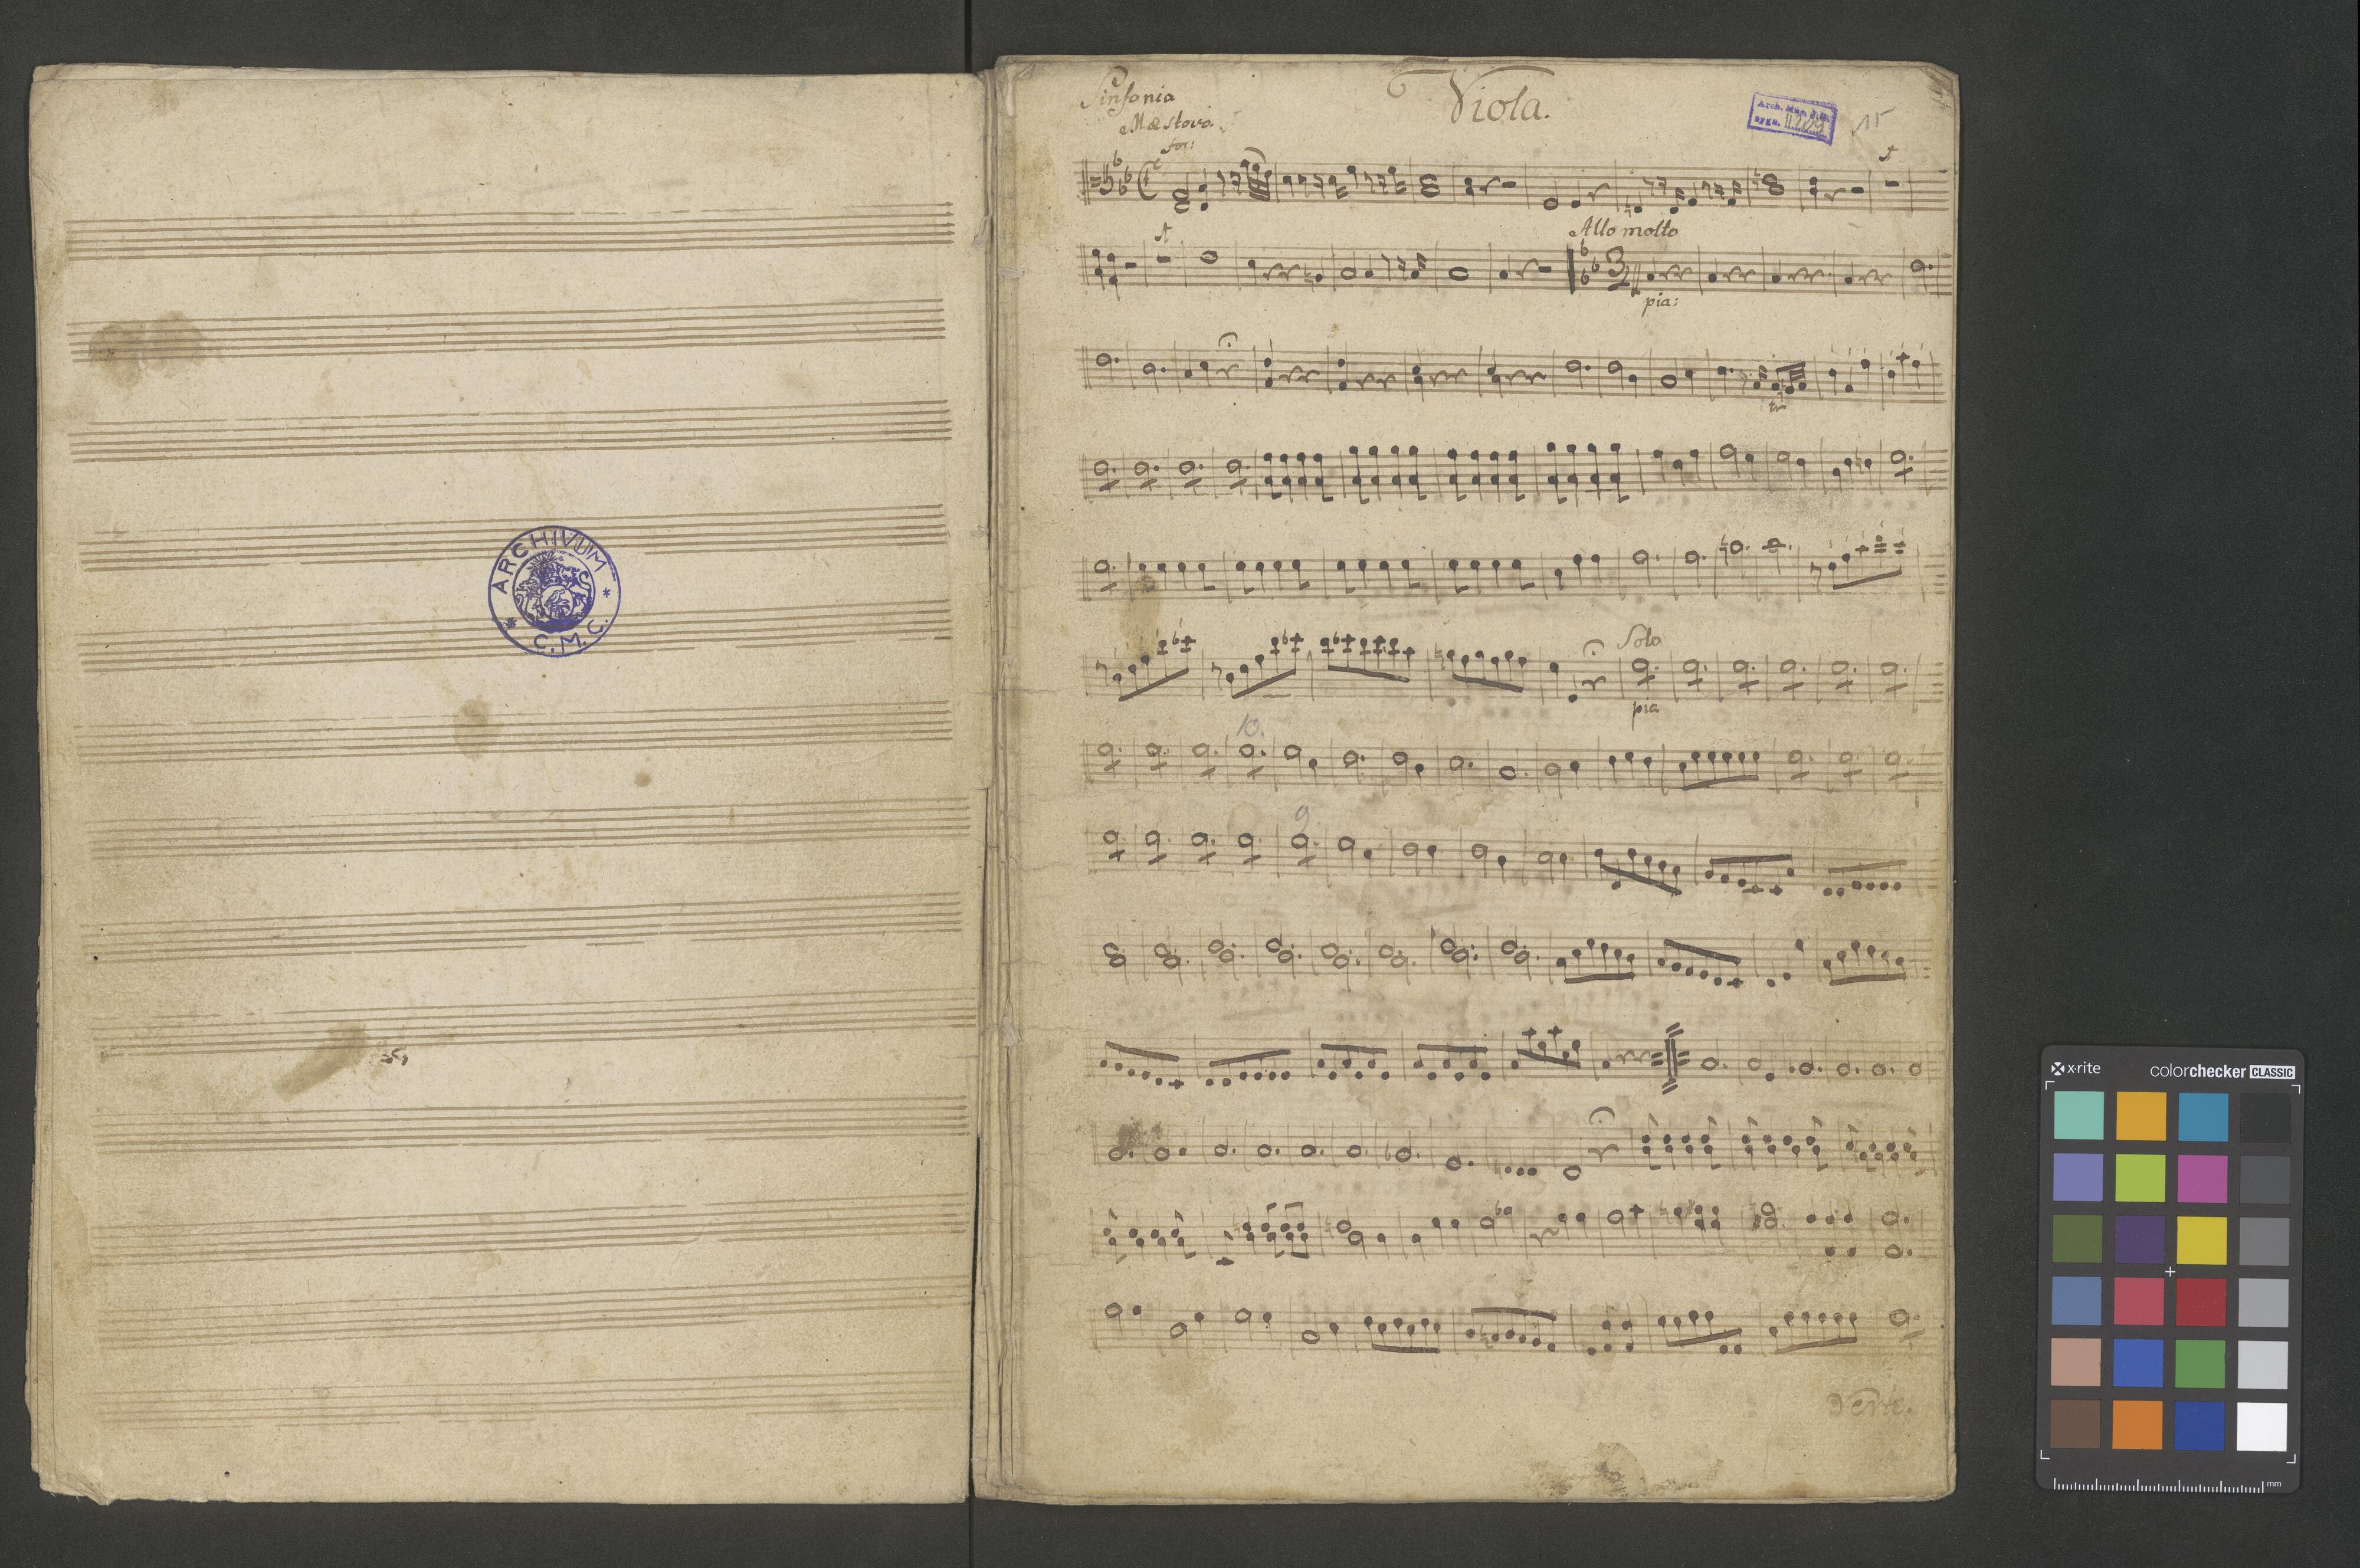 ARCHIVUM
C. M. C.
Sinfonia
Viola.
Mæstoso.
Arch. Muz. J. G.
sygn. II.
15
for:
Allo molto
pia:
tr
Solo
pia
10.
9
Verte.
x-rite
colorchecker CLASSIC
mm